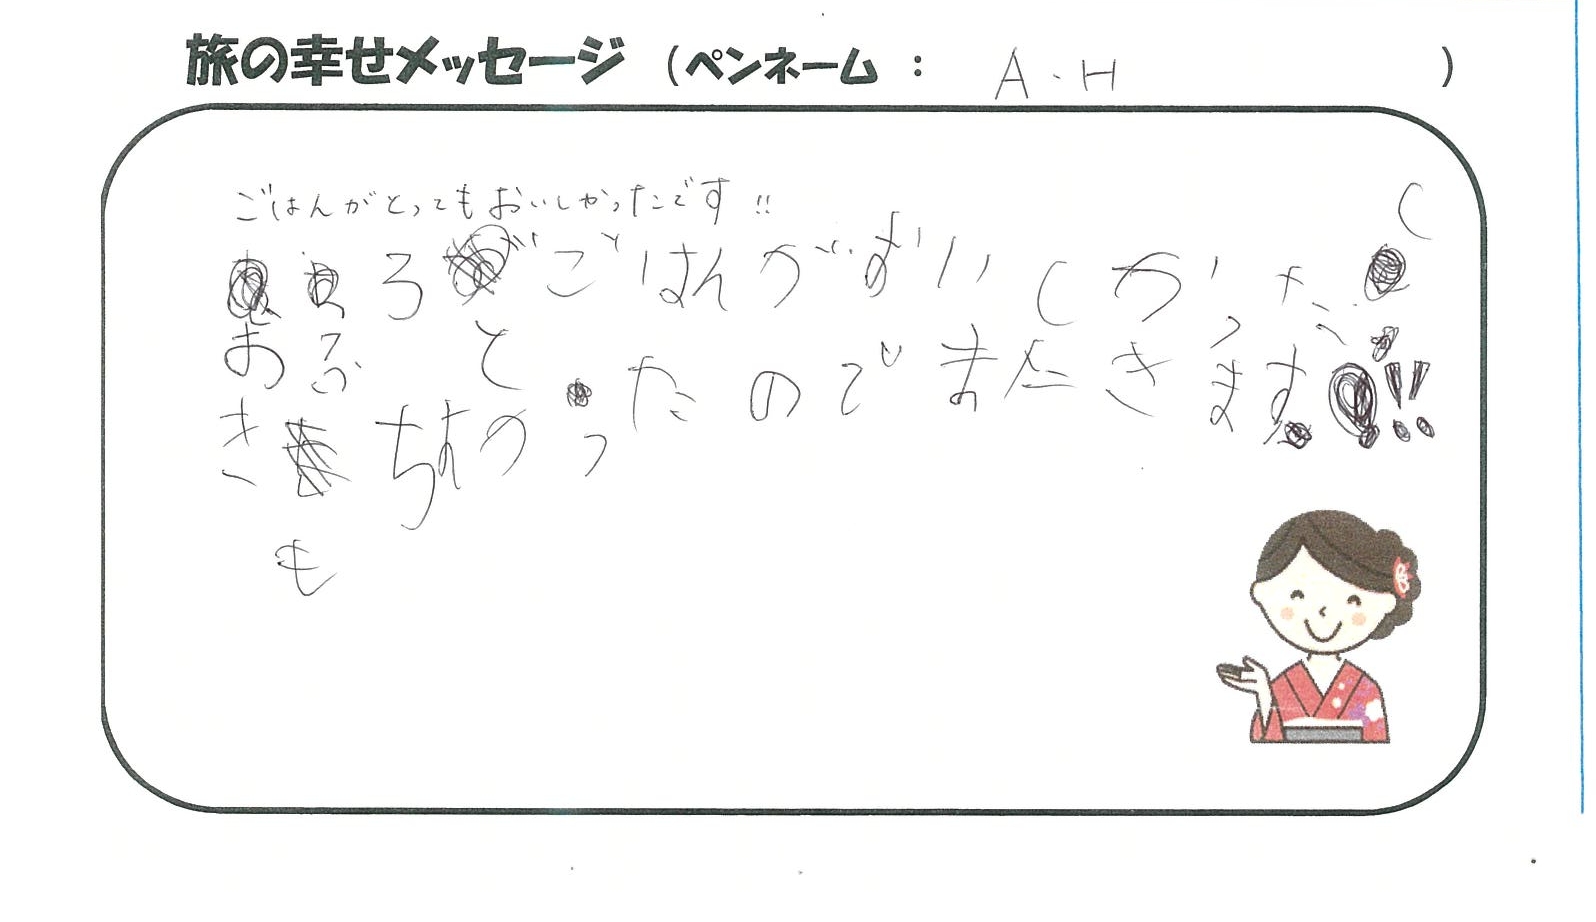 旅の幸せメッセージ （ペンネーム： A・H ）
ごはんがとってもおいしかったです!!
ろ ごはんがおいしかった し
おふ と ったのでまたきます!!
き ち
も